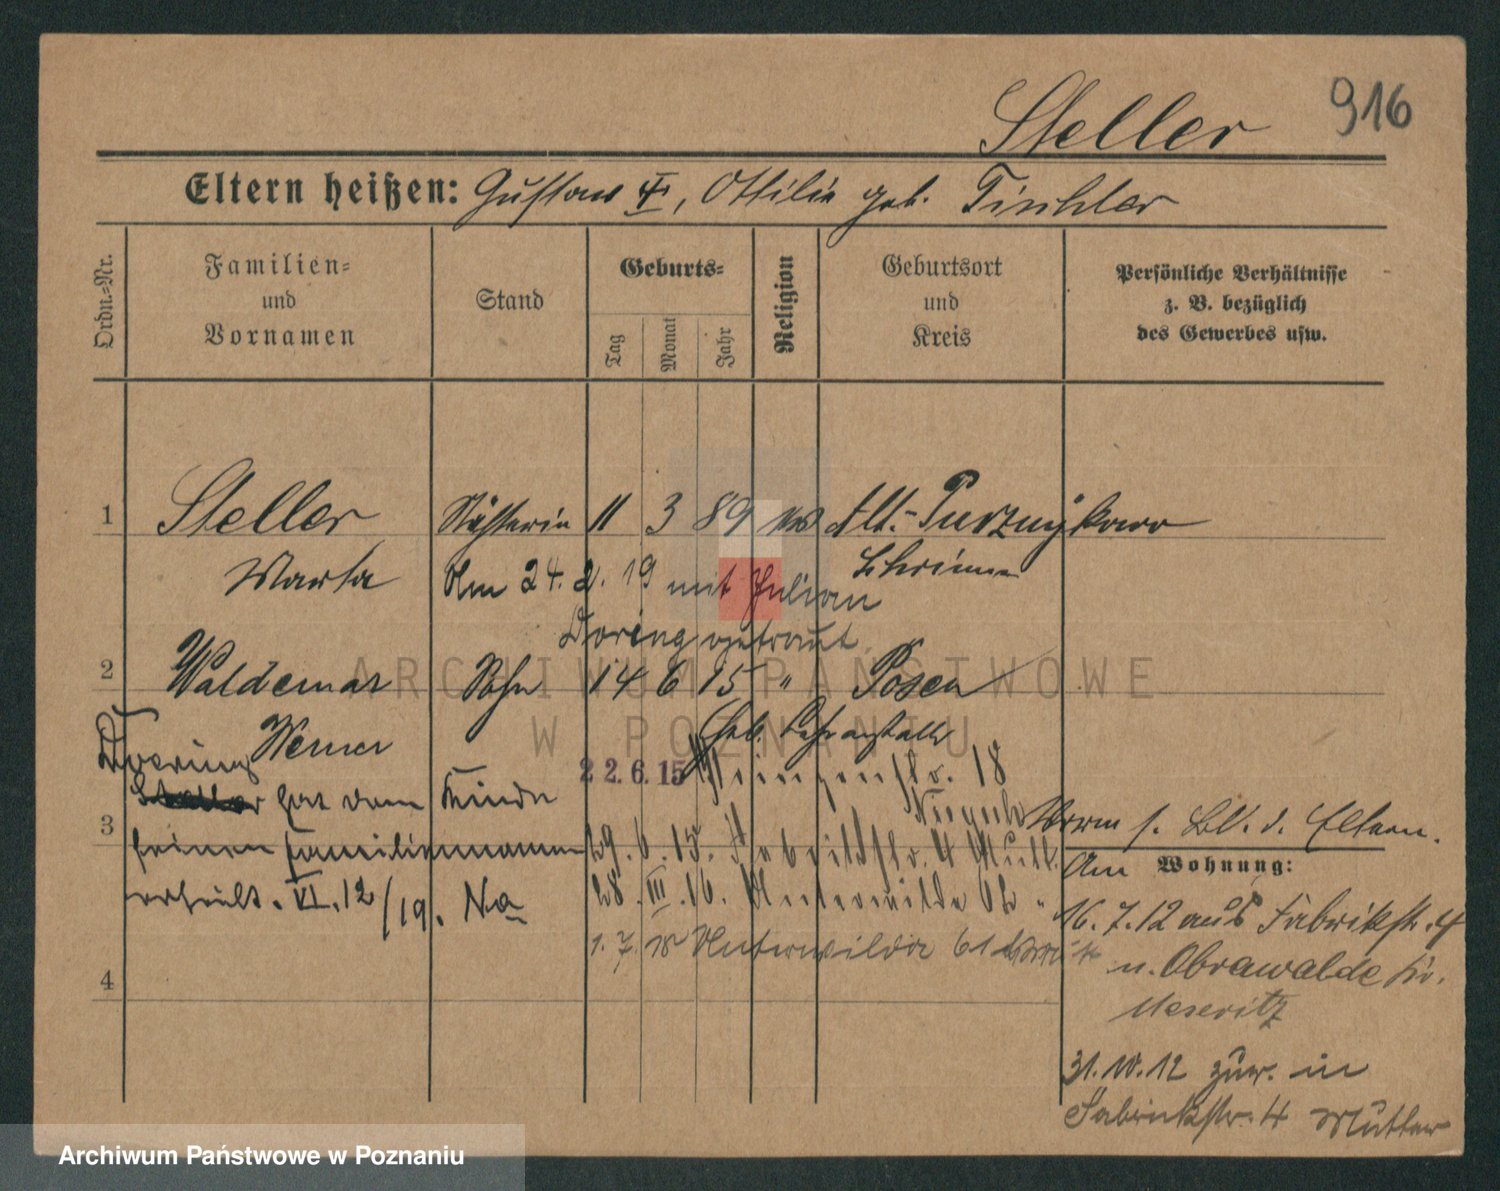 916
Steller
Eltern heißen: Gustav †, Ottilie geb. Tischler
Ordn.-Nr.
Familien-
und
Vornamen
Stand
Geburts-
Tag
Monat
Jahr
Religion
Geburtsort
und
Kreis
Persönliche Verhältnisse
z. B. bezüglich
des Gewerbes usw.
1 Steller 11 3 89 Alt-
Marta Am 24. 2. 19 mit Julian Schrimm
Doring getraut
2 Waldemar Sohn 14 6 15 " Posen
Werner Geb. Lehranstalt
Doering 22.6.15 18
Steller hat dem Kinde
3 Vorm s. Bl. d. Eltern.
seinen Familiennamen 29. 6. 15. Fabrikstr. 4 Mutt.
erteilt. VI. 12/19. Na
28. III. 16. Unterwilda 62
1. 7. 18 Unterwilda 61
4
Am Wohnung:
16. 7. 12 aus Fabrikstr. 4
n. Obrawalde Kr.
Meseritz
31. 10. 12 zur. in
Fabrikstr. 4 Mutter
ARCHIWUM PAŃSTWOWE
W POZNANIU
Archiwum Państwowe w Poznaniu